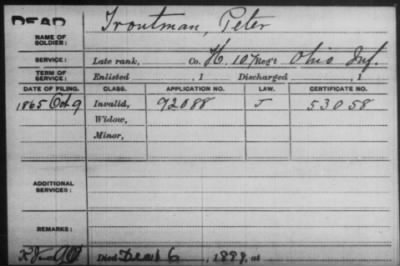 DEAD
NAME OF SOLDIER: Troutman, Peter
SERVICE: Late rank, Co. H, 107 Reg't Ohio Inf.
TERM OF SERVICE: Enlisted , 1 Discharged , 1
DATE OF FILING. CLASS. APPLICATION NO. LAW. CERTIFICATE NO.
1865 Oct 9 Invalid, 72088 J 53058
Widow,
Minor,
ADDITIONAL SERVICES:
REMARKS:
Died 6, 1899, at